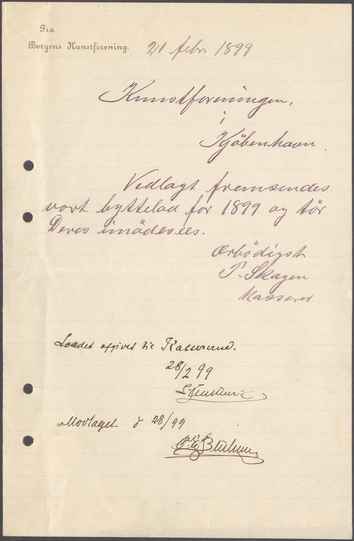 Fra
Bergens Kunstforening.
21 febr 1899
Kunstforeningen,
i
Kjöbenhavn.
Vedlagt fremsendes
vort byttelod for 1899 og tör
Deres imödesees.
Ærbödigst
P. Skagen
Kasserer
Loddet afgivet til Kassereren.
28/2 99
Modtaget d 28/99